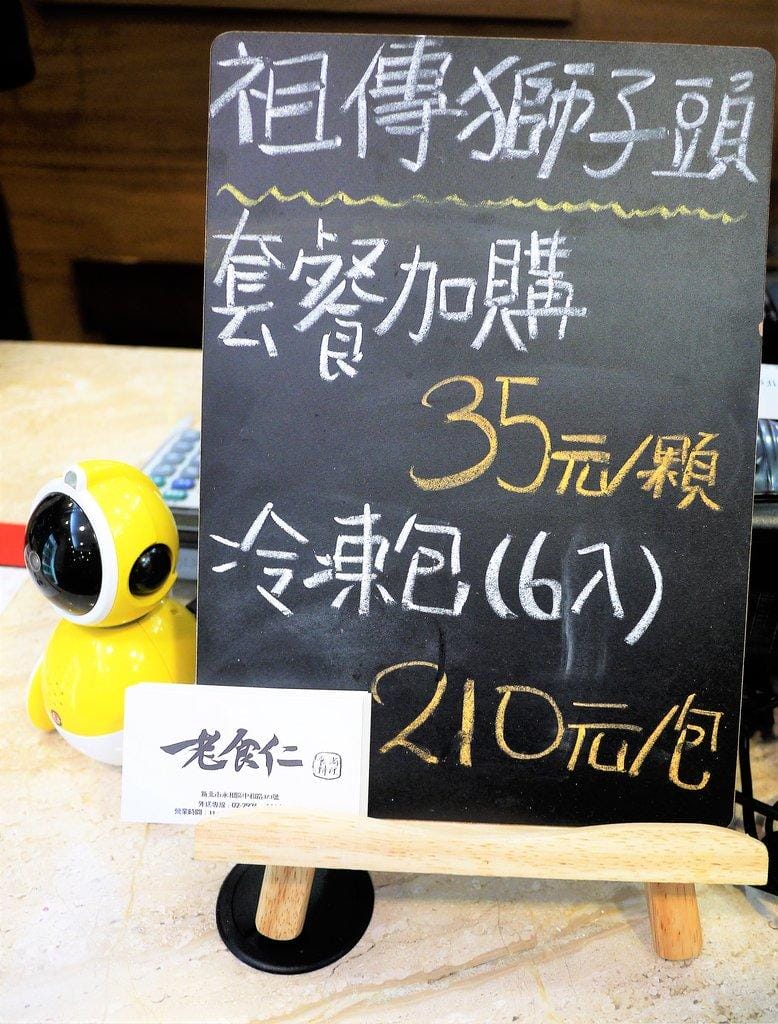 祖傳獅子頭
套餐加購
35元/顆
冷凍包(6入)
210元/包
老食仁
新北市永和區中和路373號
外送專線：02-292
營業時間：11